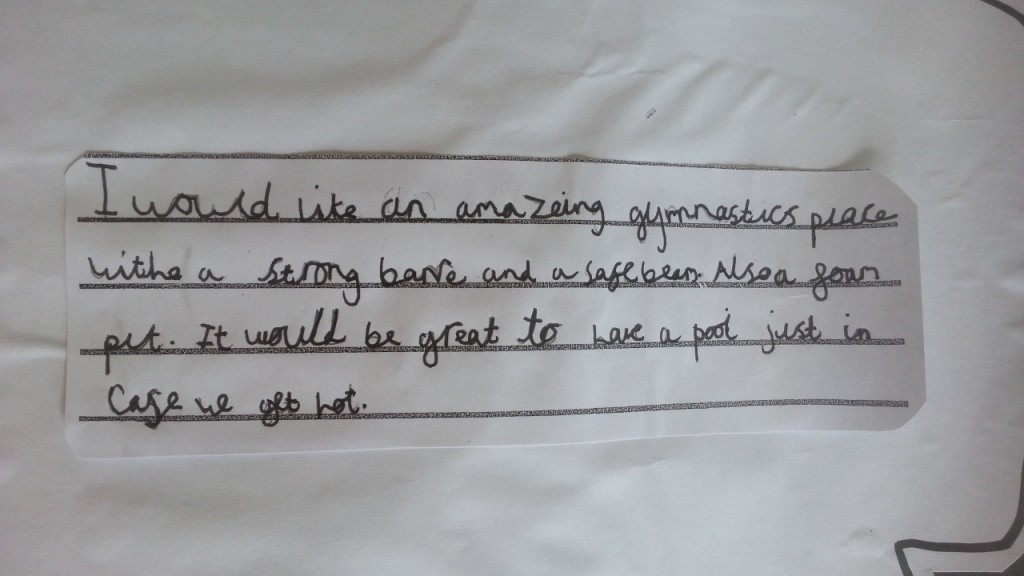 I would like an amazeing gymnastics place
withe a strong barre and a safe beem. Also a foam
pit. It would be great to have a pool just in
Case we get hot.